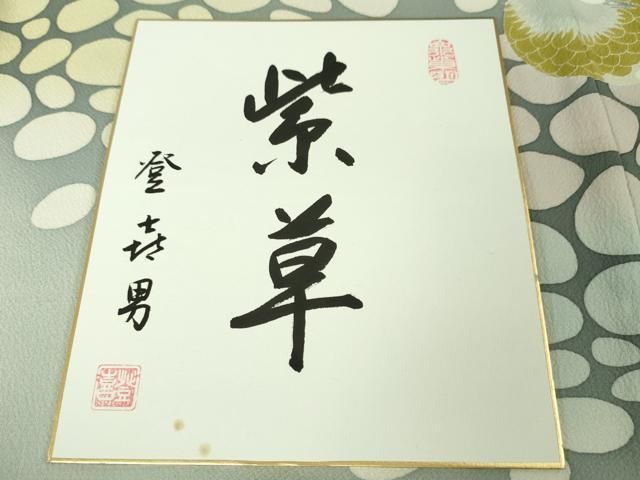 紫草
登喜男